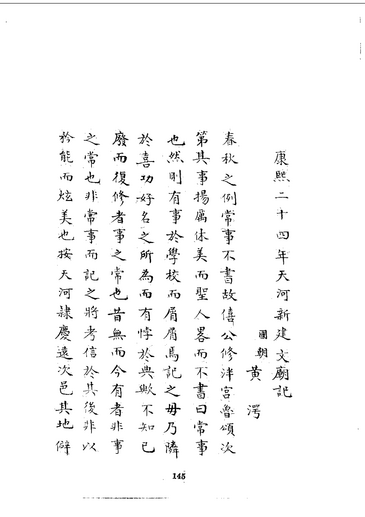 康熙二十四年天河新建文廟記
國朝黃澐
春秋之例常事不書故僖公修泮宮魯頌次
第其事揚厲休美而聖人畧而不書曰常事
也然則有事於學校而屑屑焉記之毋乃隣
於喜功好名之所為而有悖於典歟不知已
廢而復修者事之常也昔無而今有者非事
之常也非常事而記之將考信於其後非以
矜能而炫美也按天河隷慶遠次邑其地僻
145